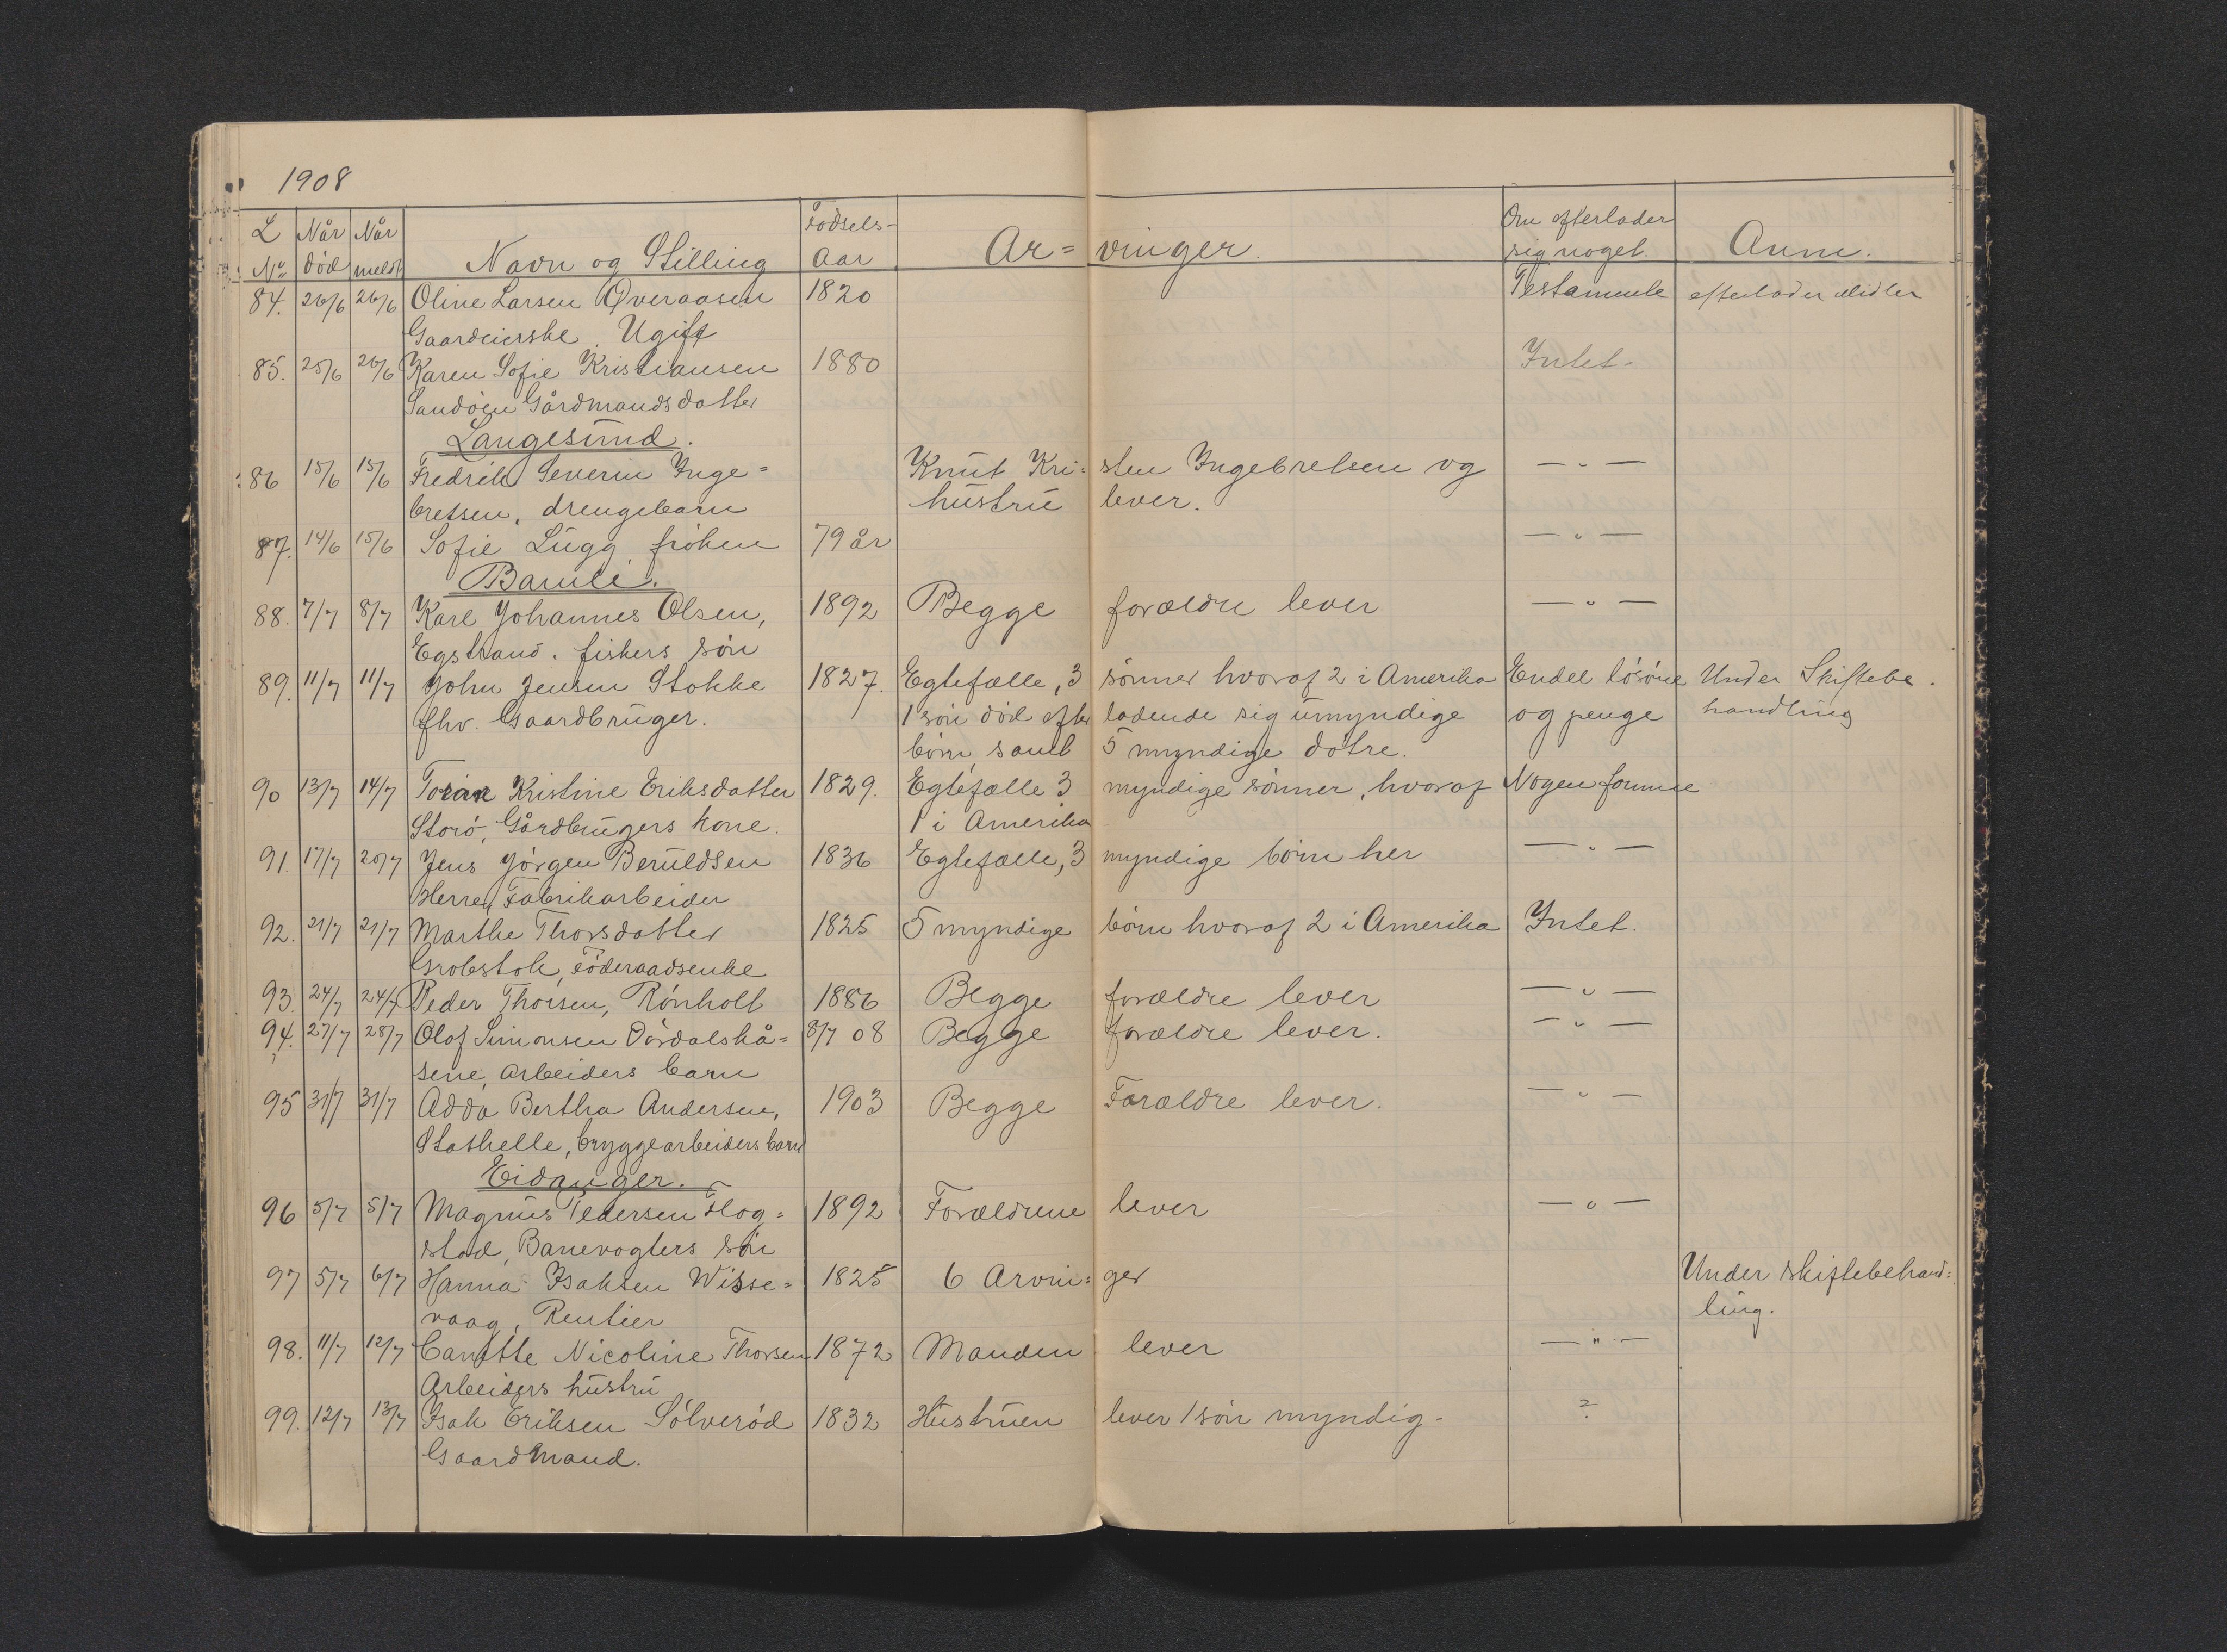 1908
L Når Når Navn og Stilling Fødsels- Ar= vinger. Om efterlader Anm.
No død meldt Aar sig noget.
84. 26/6 26/6 Oline Larsen Øveraasen 1820 Testamente efterlader Midler
Gaardeierske, Ugift
85. 25/6 26/6 Karen Sofie Kristiansen 1880 Intet.
Sandøen Gårdmandsdatter
Langesund.
86 15/6 15/6 Fredrik Severin Inge= Knut Kri= sten Ingebretsen og — " —
bretsen, drengebarn hustru lever.
87. 14/6 15/6 Sofie Lugg frøken 79 år — " —
Bamle.
88. 7/7 8/7 Karl Johannes Olsen, 1892 Begge forældre lever — " —
Egstrand. fiskers søn
89. 11/7 11/7 John Jensen Stokke 1827. Egtefælle, 3 sønner hvoraf 2 i Amerika Endel løsøre Under Skiftebe.
fhv. Gaardbruger. 1 søn død efter ladende sig umyndige og penge handling
børn, samt 5 myndige døtre.
90 13/7 14/7 Toran Kristine Eriksdatter 1829. Egtefælle 3 myndige sønner, hvoraf Nogen formue
Storø, Gårdbrugers kone. 1 i Amerika
91. 17/7 20/7 Jens Jørgen Beruldsen 1836 Egtefælle, 3 myndige børn her — " —
Herre, Fabrikarbeider
92. 21/7 21/7 Marthe Thorsdatter 1825 5 myndige børn hvoraf 2 i Amerika Intet.
Grobstok, Føderaadsenke
93. 24/7 24/7 Peder Thorsen, Rønholt 1886 Begge forældre lever — " —
94. 27/7 28/7 Olaf Simonsen Dørdalskå= 8/7 08 Begge forældre lever. — " —
sene, arbeiders barn
95 31/7 31/7 Adda Bertha Andersen, 1903 Begge Forældre lever. — " —
Stathelle, bryggearbeiders barn
Eidanger.
96 5/7 5/7 Magnus Pedersen Flog= 1892 Forældrene lever — " —
stad, Banevogters søn
97 5/7 6/7 Hanna Isaksen Wisse= 1825 6 Arvin= ger Under skiftebehand=
vaag, Rentier ling.
98. 11/7 12/7 Nicoline Thorsen 1872 Manden lever — " —
Arbeiders hustru
99. 12/7 13/7 Isak Eriksen Sølverød 1832 Hustruen lever 1 søn myndig - ?
Gaardmand.